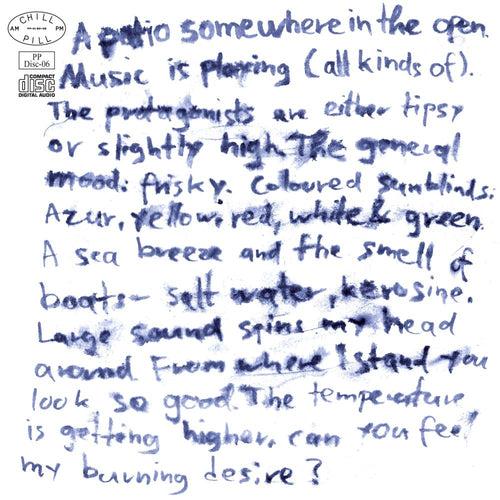 CHILL
AM PM
PILL
PP
Disc-06
COMPACT
disc
DIGITAL AUDIO
A patio somewhere in the open.
Music is playing (all kinds of).
The protagonists are either tipsy
or slightly high. The general
mood: frisky. Coloured sunblinds:
Azur, yellow, red, white & green.
A sea breeze and the smell of
boats - salt water, kerosine.
Large sound spins my head
around. From where I stand you
look so good. The temperature
is getting higher, can you feel
my burning desire?